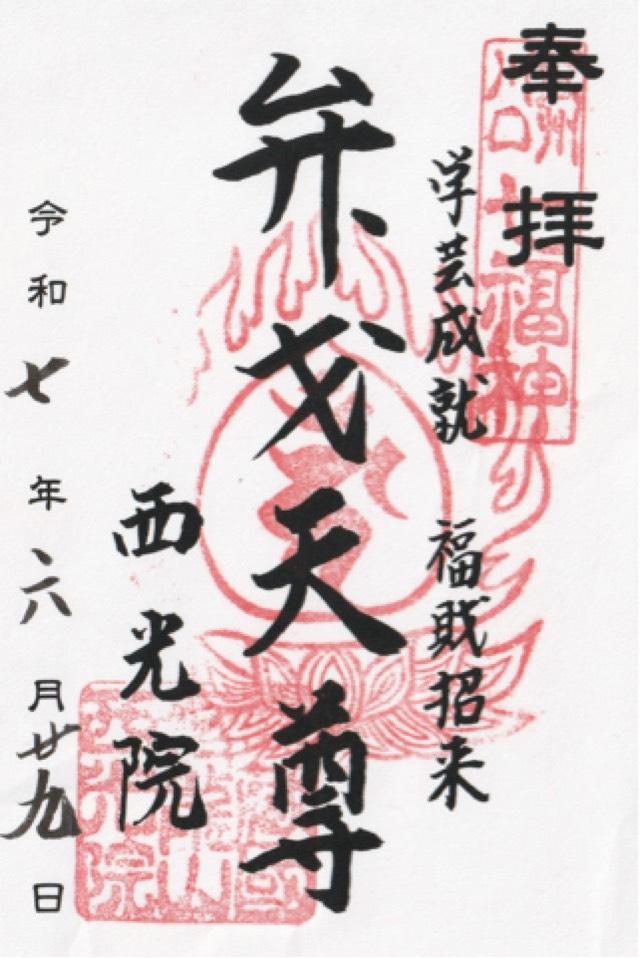 奉拝
学芸成就 福財招来
弁才天尊
西光院
令和七年六月廿九日
七福神